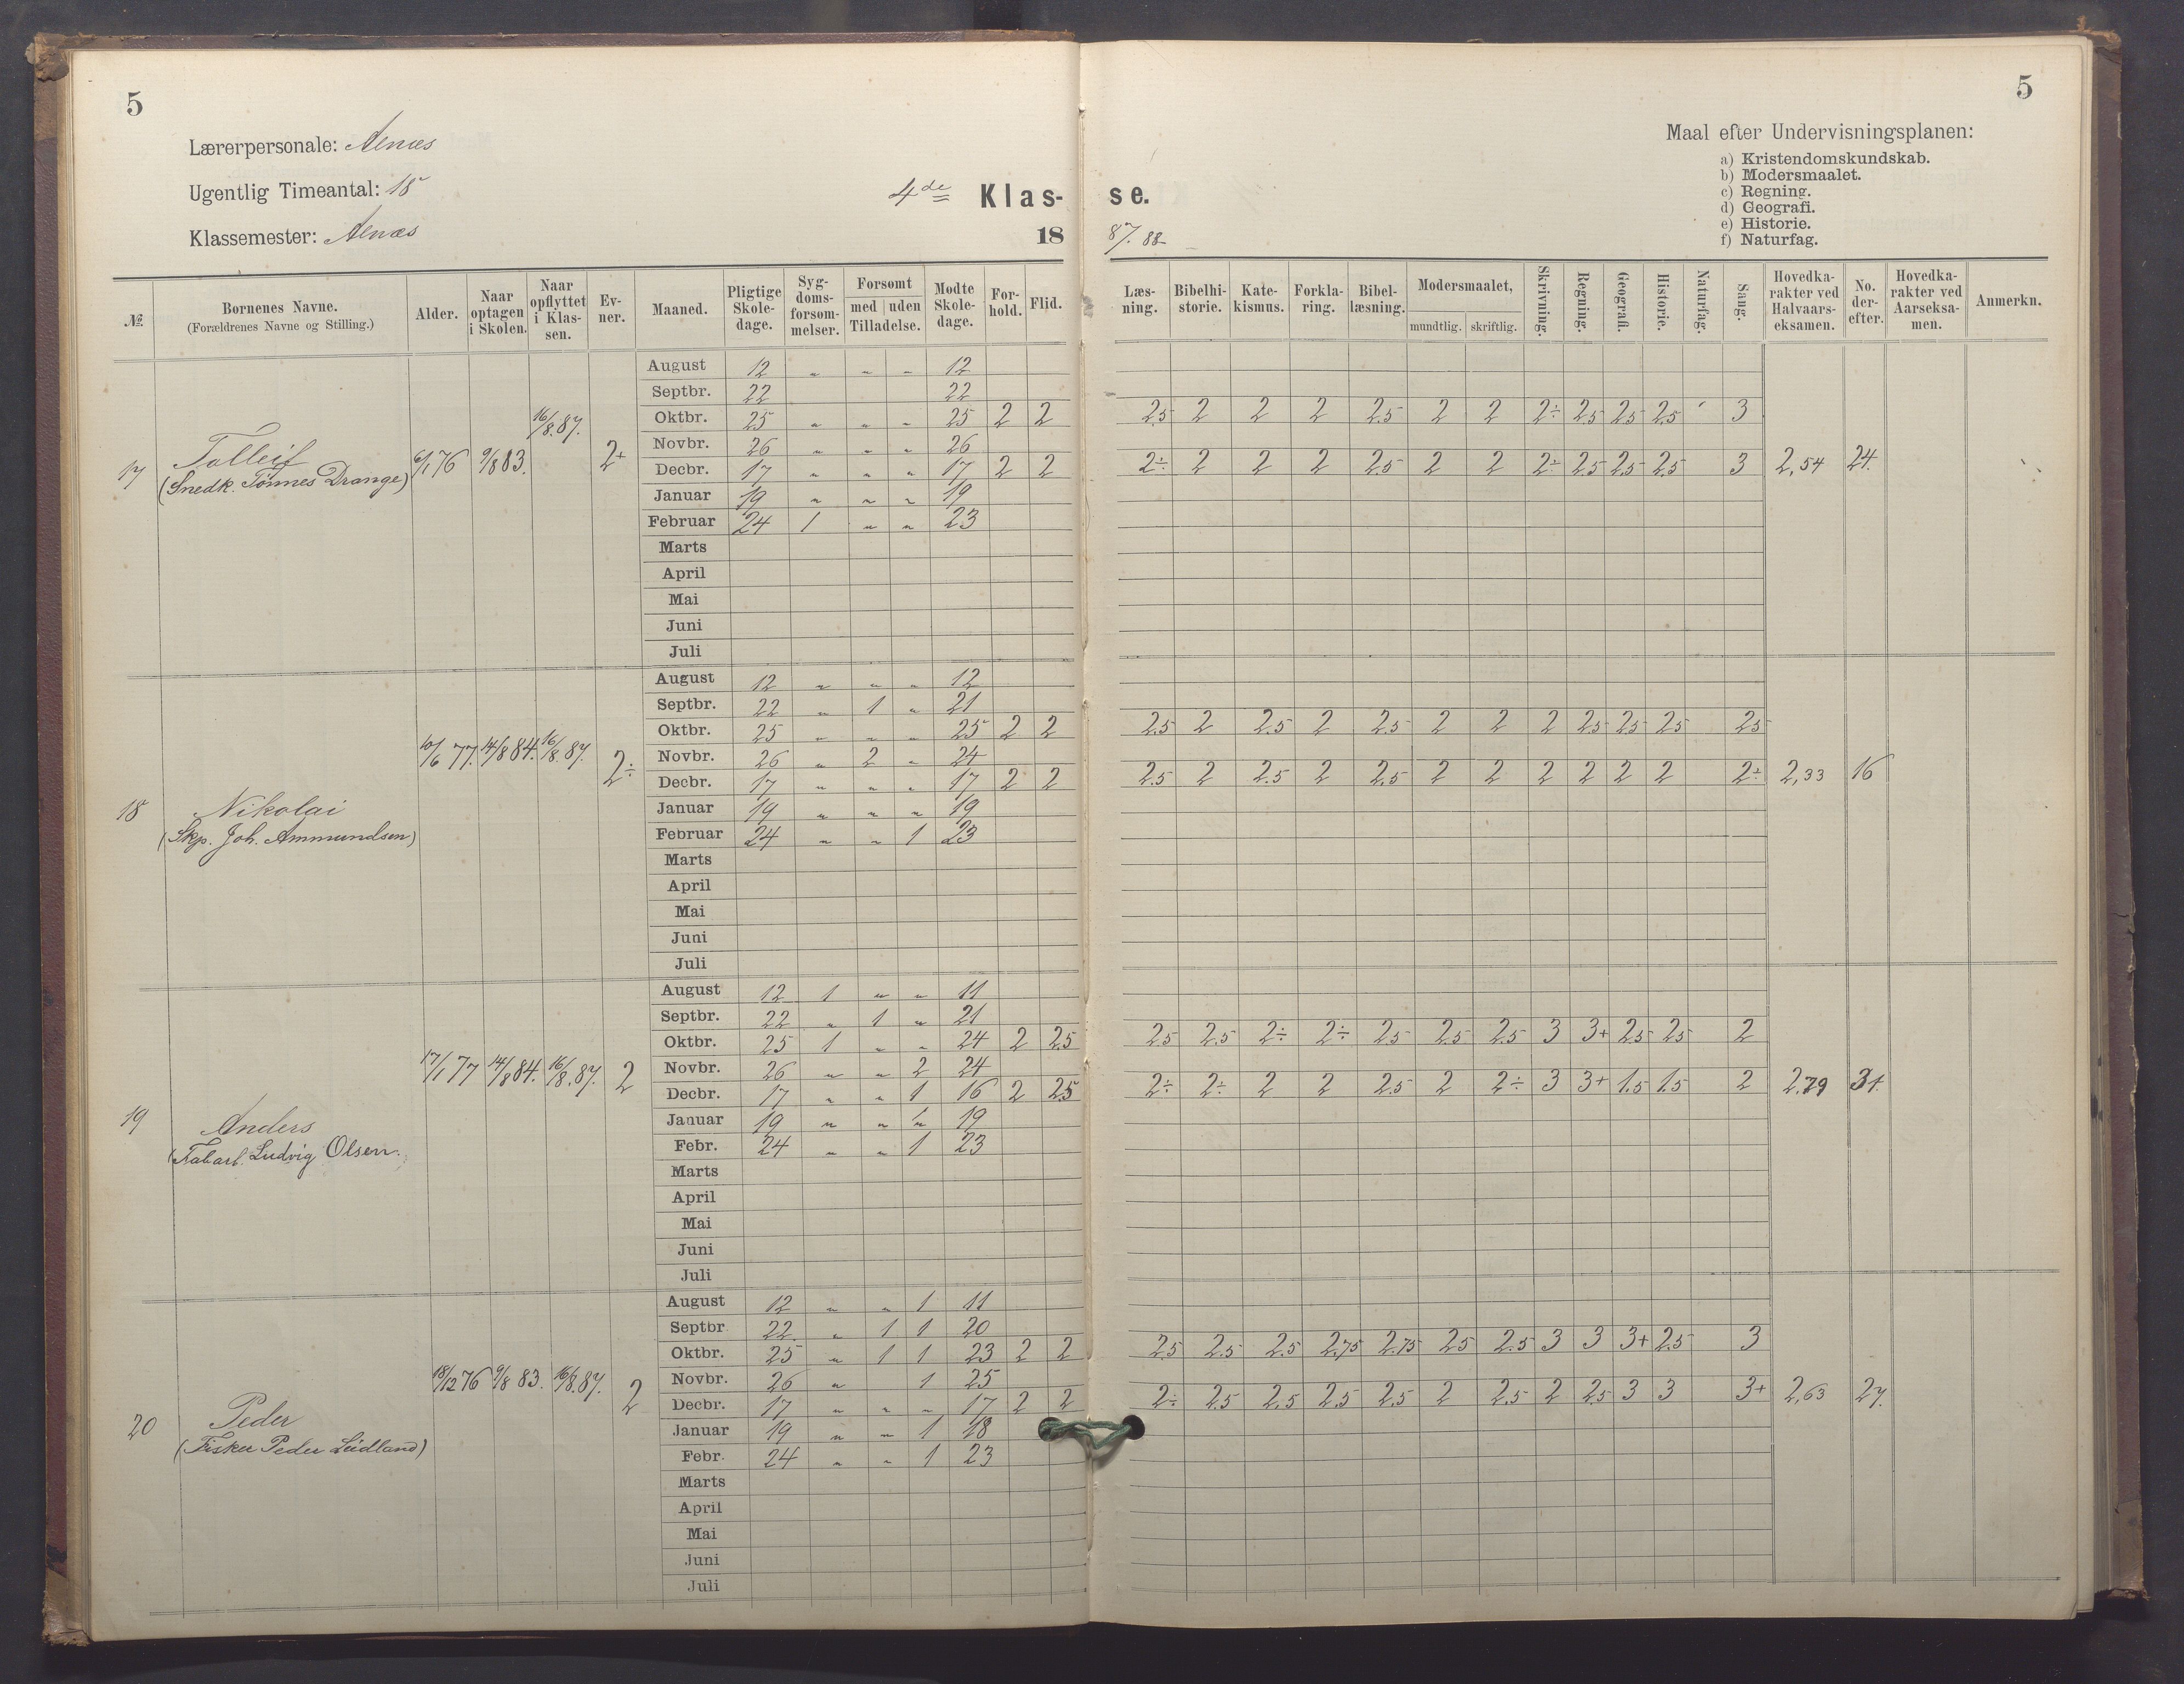 5
5
Lærerpersonale: Alnæs
Ugentlig Timeantal: 18
Klassemester: Alnæs
4de Klas- se.
18 87. 88
Maal efter Undervisningsplanen:
a) Kristendomskundskab.
b) Modersmaalet.
c) Regning.
d) Geografi.
e) Historie.
f) Naturfag.
№ | Bornenes Navne. (Forældrenes Navne og Stilling.) | Alder. | Naar optagen i Skolen. | Naar opflyttet i Klassen. | Evner. | Maaned. | Pligtige Skoledage. | Sygdomsforsommelser. | Forsomt med uden Tilladelse. | Modte Skoledage. | Forhold. | Flid. | Læsning. | Bibelhistorie. | Katekismus. | Forklaring. | Bibellæsning. | Modersmaalet, mundtlig. skriftlig. | Skrivning. | Regning. | Geografi. | Historie. | Naturfag. | Sang. | Hovedkarakter ved Halvaarseksamen. | No. derefter. | Hovedkarakter ved Aarseksamen. | Anmerkn.
17 Tolleif (Snedk. Tönnes Drange) 6/1 76 9/8 83. 16/8.87. 2+
August 12 " " " 12
Septbr. 22 22
Oktbr. 25 " " " 25 2 2 | 2.5 2 2 2 2.5 2 2 2÷ 2.5 2.5 2.5 3
Novbr. 26 " " " 26
Decbr. 17 " " " 17 2 2 | 2÷ 2 2 2 2.5 2 2 2÷ 2.5 2.5 2.5 3 2,54 24.
Januar 19 " " " 19
Februar 24 1 " " 23
Marts
April
Mai
Juni
Juli
18 Nikolai (Skp. Joh. Ammundsen) 10/6 77. 14/8 84. 16/8.87. 2÷
August 12 " " " 12
Septbr. 22 " 1 " 21
Oktbr. 25 " " " 25 2 2 | 2.5 2 2.5 2 2.5 2 2 2 2.5 2.5 2.5 2.5
Novbr. 26 " 2 " 24
Decbr. 17 " " " 17 2 2 | 2.5 2 2.5 2 2.5 2 2 2 2 2 2 2÷ 2,33 16
Januar 19 " " " 19
Februar 24 " " 1 23
Marts
April
Mai
Juni
Juli
19 Anders (Fabarb. Ludvig Olsen. 17/1 77 14/8 84. 16/8.87. 2
August 12 1 " " 11
Septbr. 22 " 1 " 21
Oktbr. 25 1 " " 24 2 2.5 | 2.5 2.5 2÷ 2÷ 2.5 2.5 2.5 3 3+ 2.5 2.5 2
Novbr. 26 " " 2 24
Decbr. 17 " " 1 16 2 2.5 | 2÷ 2÷ 2 2 2.5 2 2÷ 3 3+ 1.5 1.5 2 2.79 31.
Januar 19 " " " 19
Febr. 24 " " 1 23
Marts
April
Mai
Juni
Juli
20 Peder (Fisker Peder Lüdland) 18/12 76 9/8 83. 16/8.87. 2
August 12 " " 1 11
Septbr 22 " 1 1 20
Oktbr. 25 " 1 1 23 2 2 | 2.5 2.5 2.5 2.75 2.75 2.5 2.5 3 3 3+ 2.5 3
Novbr. 26 " 1 25
Decbr. 17 " " " 17 2 2 | 2÷ 2.5 2.5 2.5 2.5 2 2.5 2 2.5 3 3 3+ 2,63 27.
Januar 19 " " 1 18
Febr. 24 " " 1 23
Marts
April
Mai
Juni
Juli